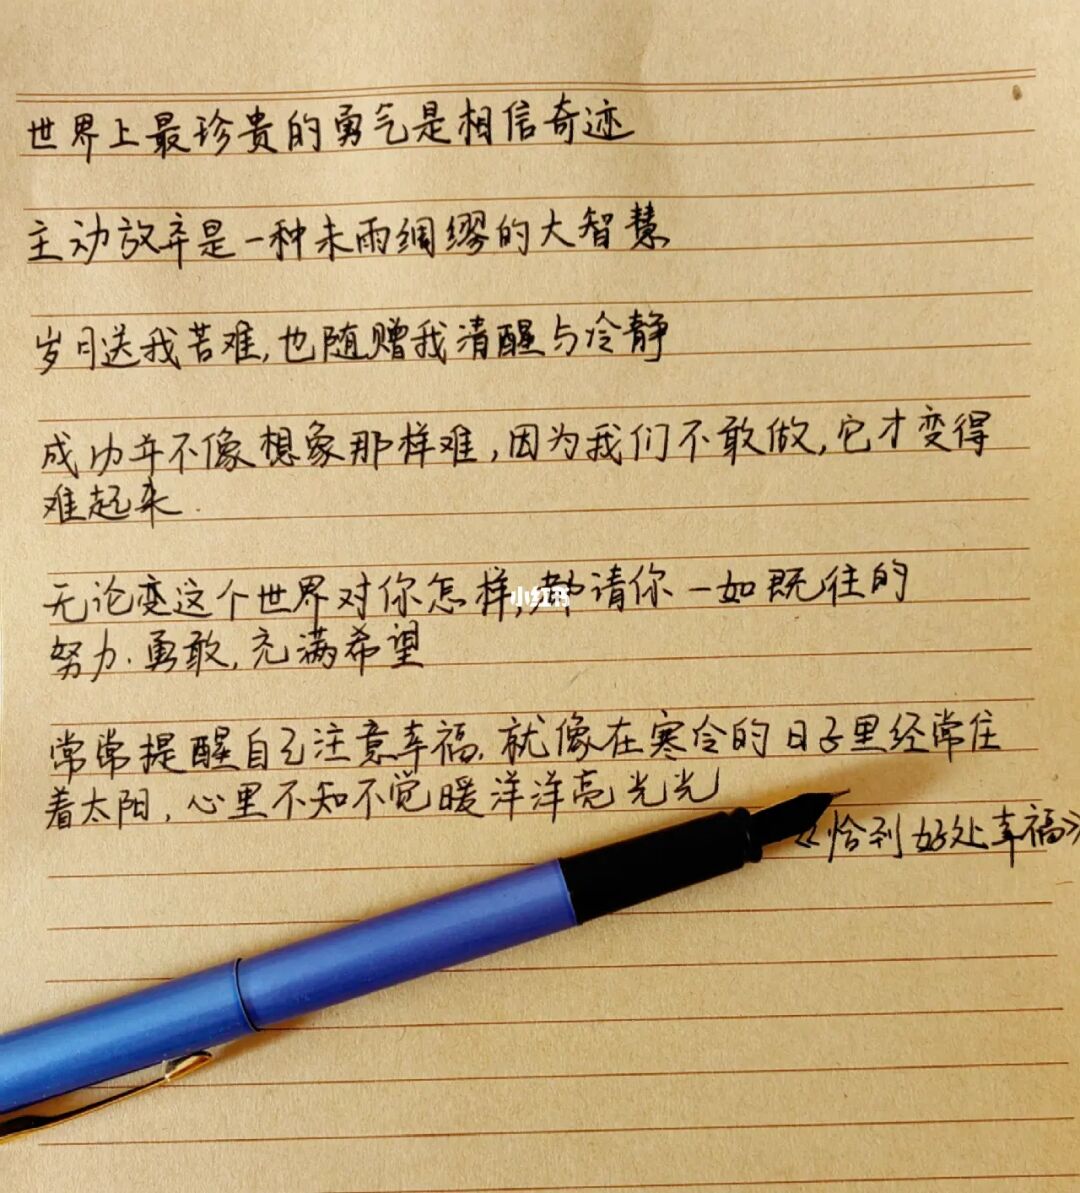 世界上最珍贵的勇气是相信奇迹
主动放弃是一种未雨绸缪的大智慧
岁月送我苦难,也随赠我清醒与冷静
成功并不像想象那样难,因为我们不敢做,它才变得
难起来.
无论变这个世界对你怎样,都请你一如既往的
努力.勇敢,充满希望
常常提醒自己注意幸福.就像在寒冷的日子里经常住
着太阳,心里不知不觉暖洋洋亮光光
《恰到好处幸福》
小红书